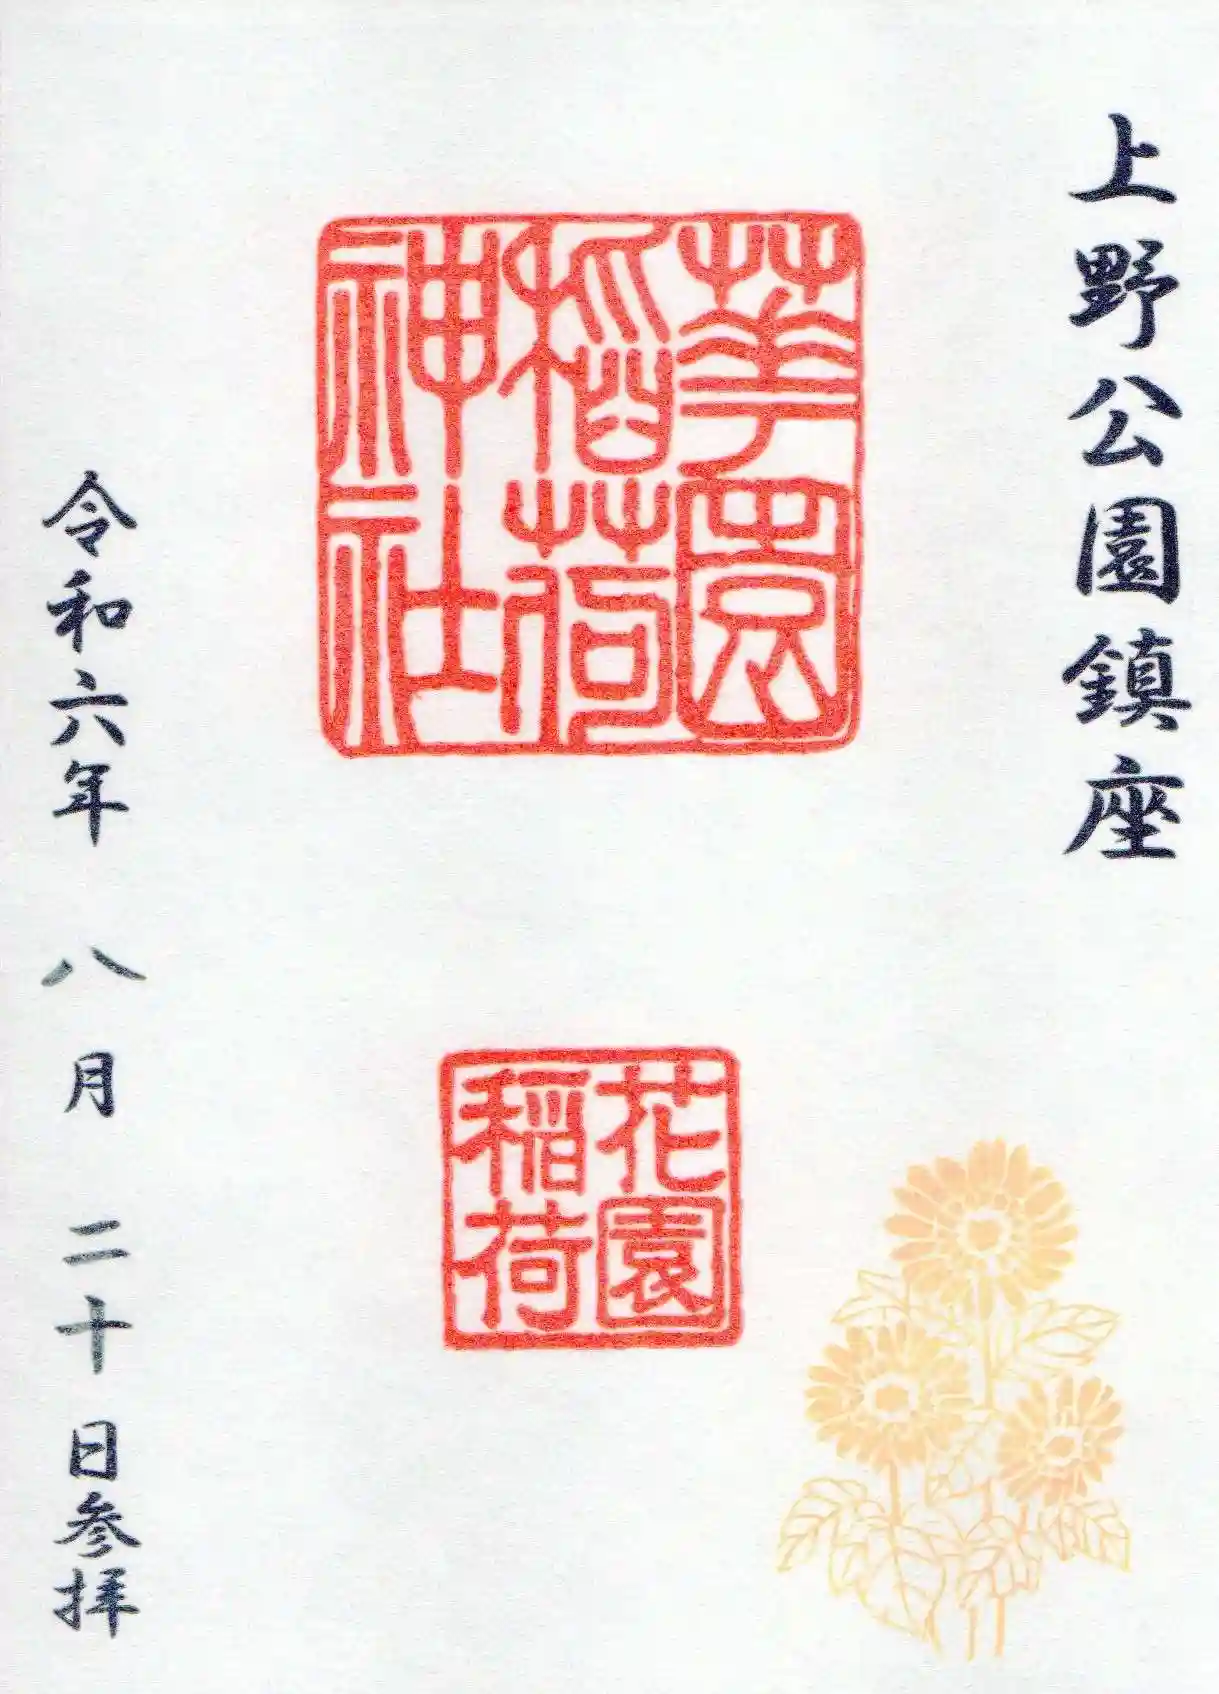 上野公園鎮座
華園
稲荷
神社
花園
稲荷
令和六年 八月 二十日参拝